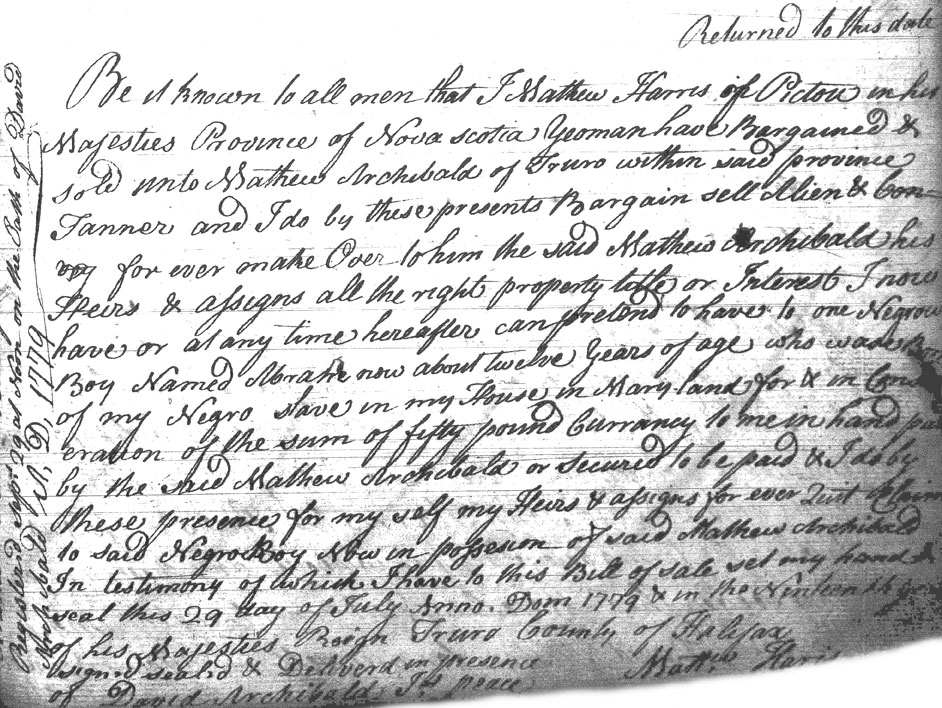 Returned to this date
Be it known to all men that I Mathew Harris of Pictou in his
Majesties Province of Nova scotia Yeoman have Bargained &
sold unto Mathew Archibald of Truro within said province
Tanner and I do by these presents Bargain sell Alien & Con-
vey for ever make Over to him the said Mathew Archibald his
Heirs & assigns all the right property title or Interest I now
have or at any time hereafter can pretend to have to one Negrow
Boy Named Abram now about twelve Years of age who was Bor
of my Negro slave in my House in Mary land for & in Cons
eration of the sum of fifty pound Currancy to me in hand paid
by the said Mathew Archibald or secured to be paid & I do by
these presence for my self my Heirs & assigns for ever Quit Claim
to said Negro Boy Now in possesion of said Mathew Archibald
In testimony of which I have to this Bill of sale set my hand &
seal this 29 day of July Anno. Dom 1779 & in the Ninteenth
of his Majesties Reign Truro County of Halifax
signed sealed & Deliverd in presence
of David Archibald Jus peace
Matt.w Haris
Registerd Sepr 29 at Noon on the Oath of David
Archibald A, D, 1779